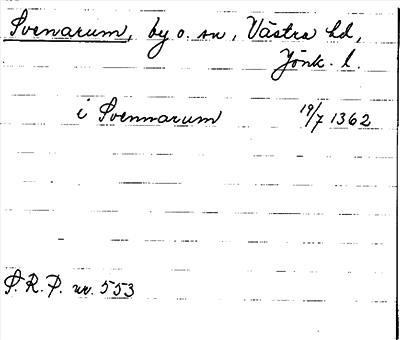 Svenarum, by o. sn, Västra hd,
Jönk. l.
i Svennarum 19/7 1362
S.R.P. nr. 553